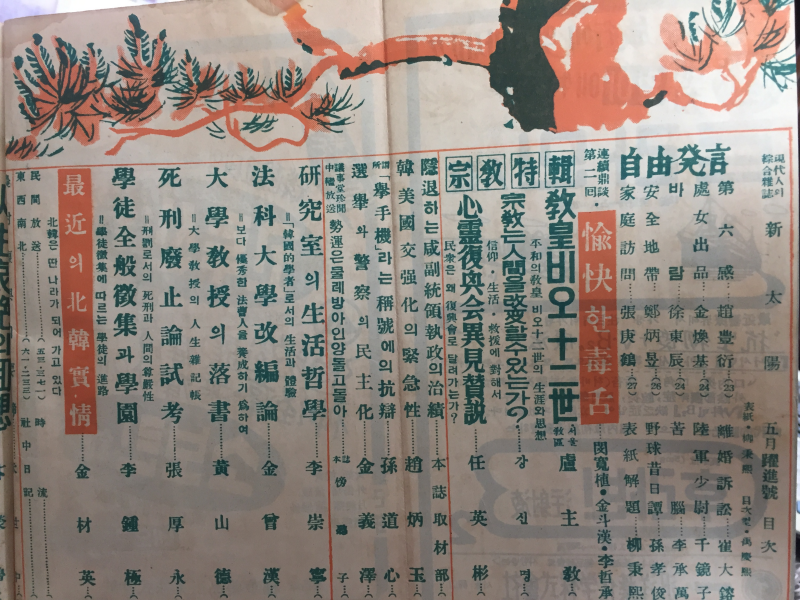 現代人의
綜合雜誌 新太陽 五月躍進號 目次
自由発言
第六感 趙豊衍 (23) 離婚訴訟 崔大鎔
處女出品 金煥基 (24) 陸軍少尉 千鏡子
바람 徐東辰 (24) 苦腦 李承萬
安全地帶 鄭炳昱 (26) 野球昔日譚 孫孝俊
家庭訪問 張庚鶴 (27) 表紙解題 柳秉熙
連續鼎談
第二回 愉快한毒舌 閔寬植・金斗漢・李哲承
特輯 宗教
教皇비오十二世 서울教區 盧主教
平和의教皇 비오十二世의 生涯와思想
宗教는人間을改変할수있는가? 강신명
信仰・生活・救援에 對해서
心靈復興会異見賛説 任英彬
民衆은 왜 復興會로 달려가는가?
隱退하는咸副統領執政의治績 本誌取材部
韓美國交强化의緊急性 趙炳玉
所謂「擧手機」라는稱號에의抗辯 孫道心
選擧와警察의民主化 金義澤
議事堂珍聞
中繼放送 勢運은물레방아인양돌고돌아
研究室의生活哲學 李崇寧
=「韓國的學者」로서의 生活과 體驗
法科大學改編論 金曾漢
=보다 優秀한 法曹人을 養成하기 爲하여
大學教授의落書 黃山德
=大學教授의 人生雜記帳
死刑廢止論試考 張厚永
=刑罰로서의 死刑과 人間의尊嚴性
學徒全般徵集과學園 李鍾極
=學徒徵集에 따르는 學徒의 進路
最近의北韓實情 金材英
北韓은 딴 나라가 되어 가고 있다
民間放送 (五三・七一) 時流世
東西南北 (六一・二三三) 社中日記